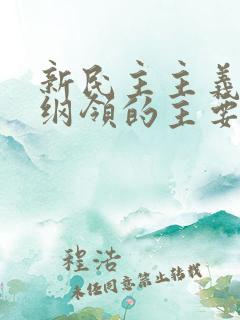 新民主主義
纲领的主要
程浩
未经同意禁止转载